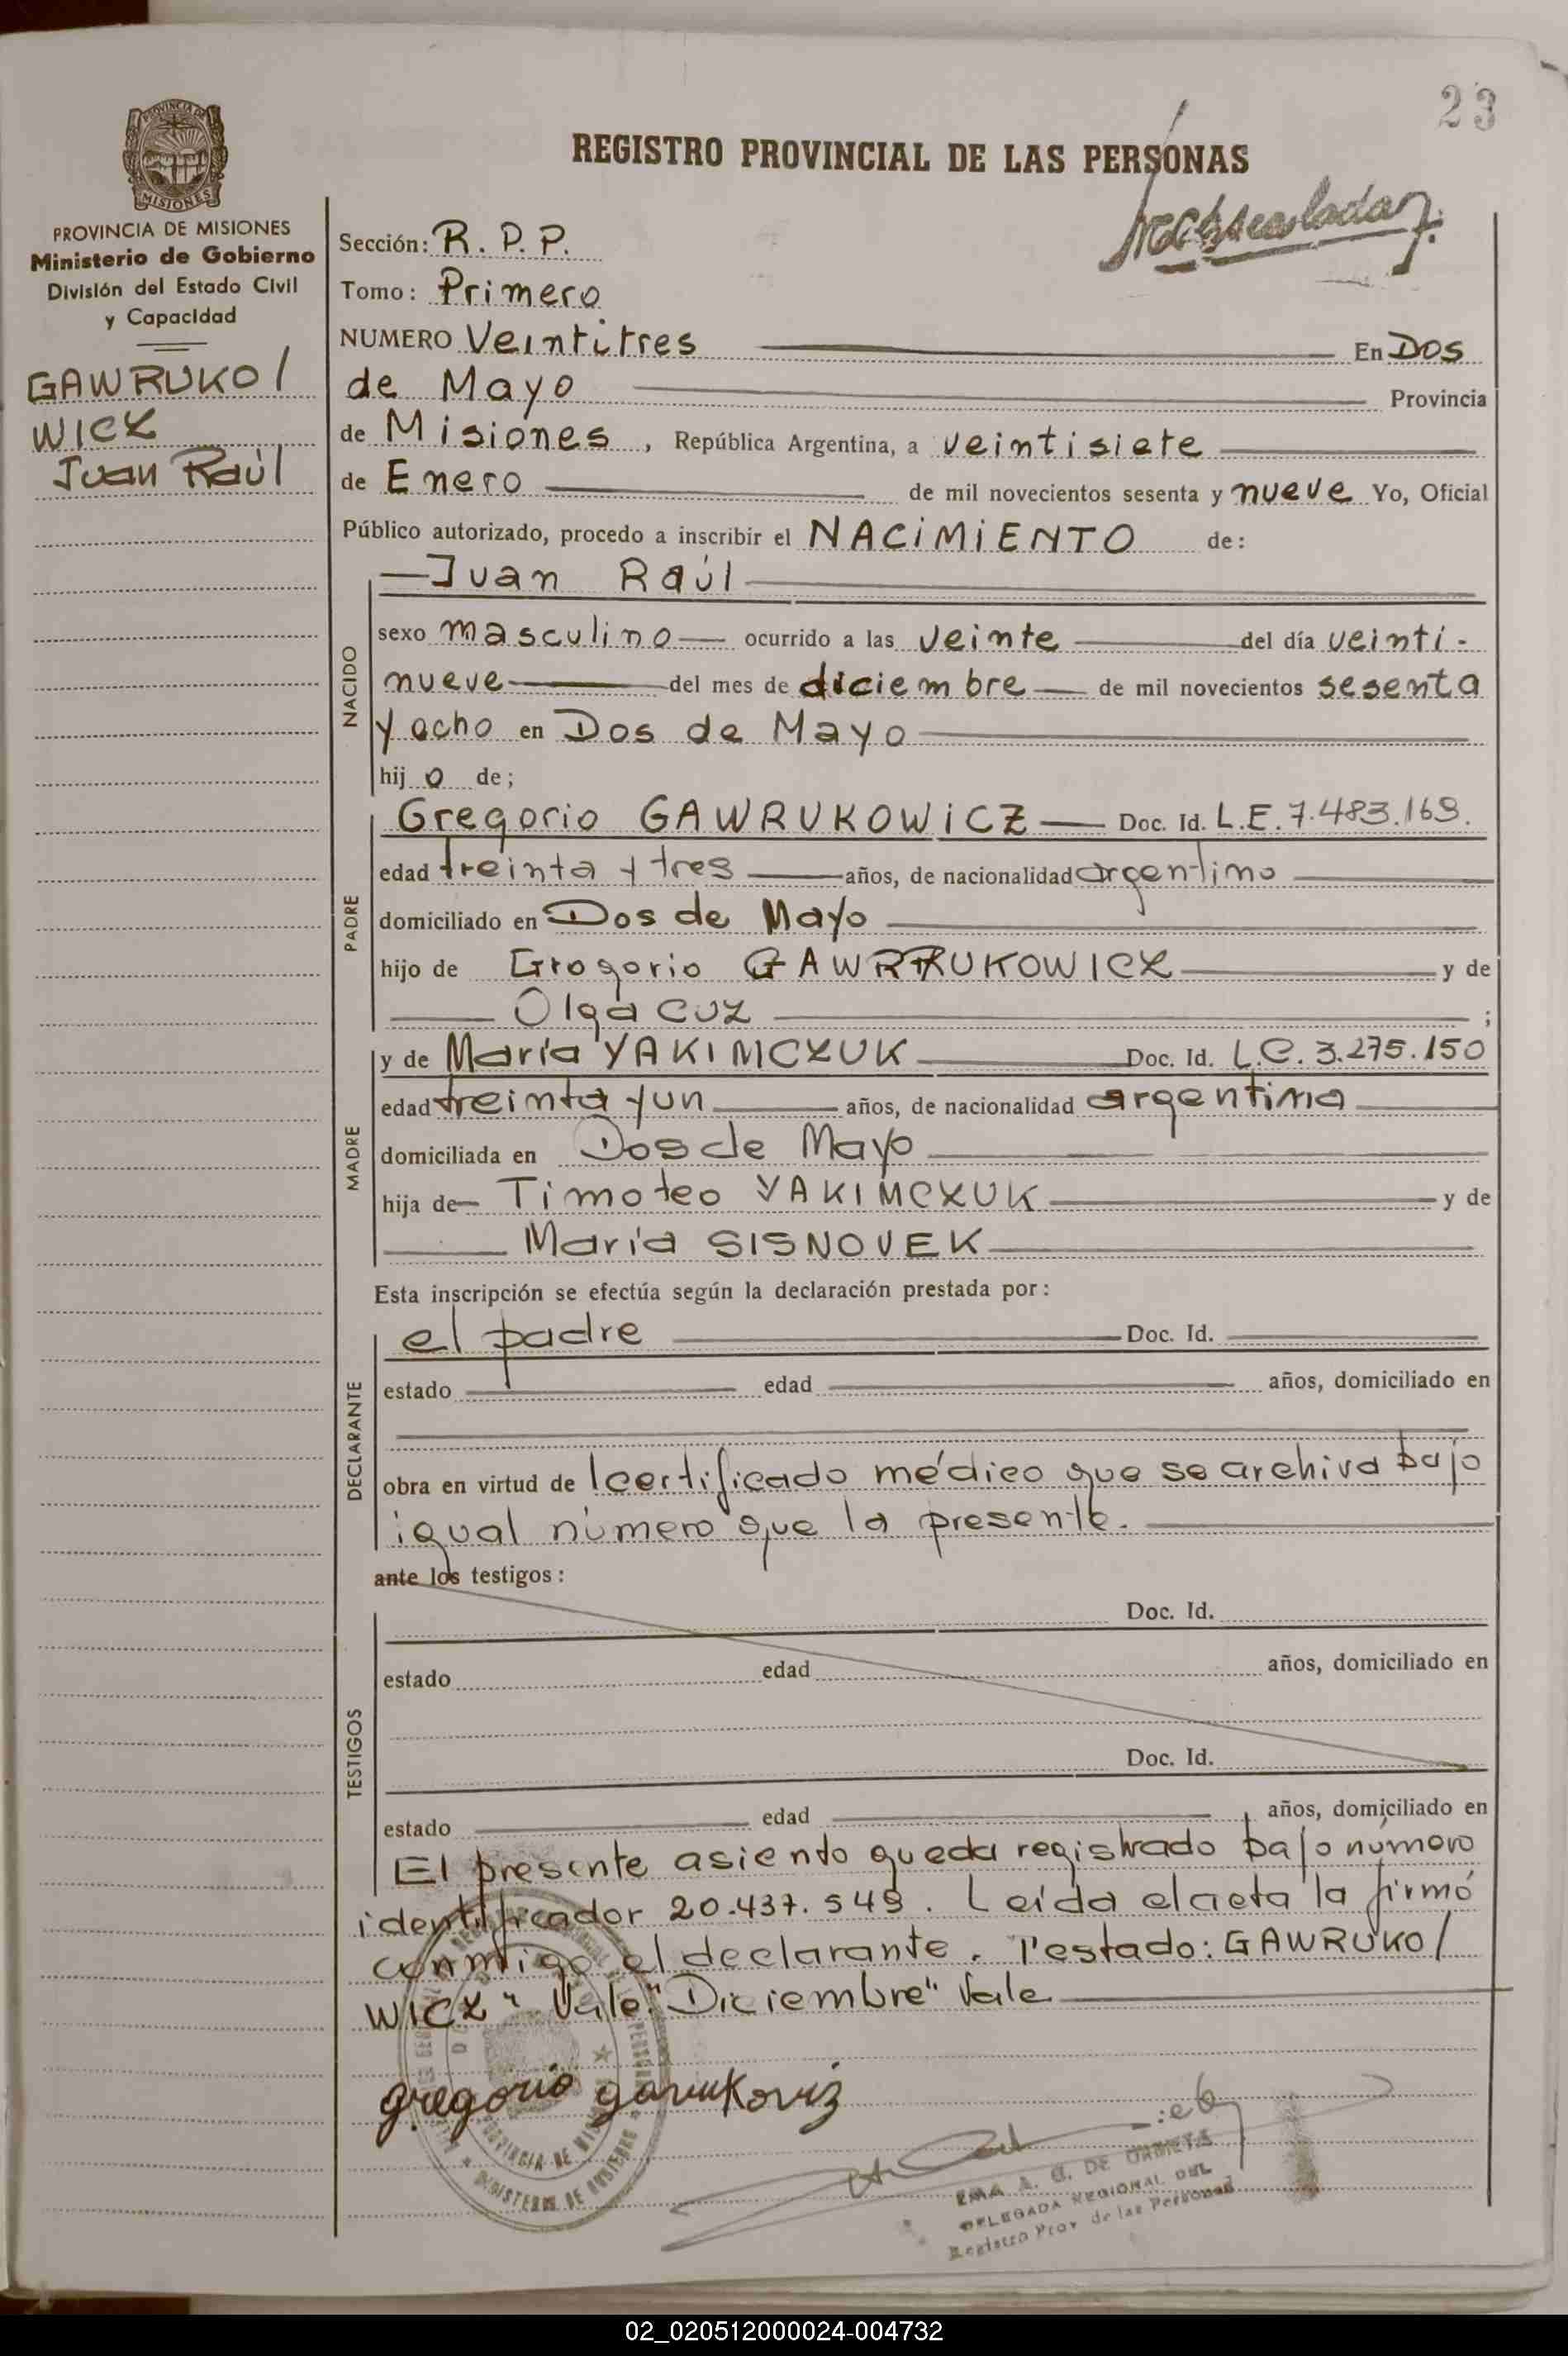 23
PROVINCIA DE
MISIONES
REGISTRO PROVINCIAL DE LAS PERSONAS
PROVINCIA DE MISIONES
Ministerio de Gobierno
División del Estado Civil
y Capacidad
GAWRUKO/
WICZ
Juan Raúl
Sección: R.P.P.
Tomo: Primero
NUMERO Veintitres En Dos
de Mayo Provincia
de Misiones, República Argentina, a veintisiete
de Enero de mil novecientos sesenta y nueve Yo, Oficial
Público autorizado, procedo a inscribir el NACiMiENTO de:
Juan Raúl
NACIDO
sexo masculino ocurrido a las veinte del día veinti-
nueve del mes de diciembre de mil novecientos sesenta
y ocho en Dos de Mayo
hijo de;
PADRE
Gregorio GAWRUKOWiCZ Doc. Id. L.E. 7.483.169.
edad treinta y tres años, de nacionalidad argentino
domiciliado en Dos de Mayo
hijo de Grogorio GAWRRUKOWICZ y de
Olga CUZ ;
MADRE
y de María YAKIMCZUK Doc. Id. L.C. 3.275.150
edad treinta y un años, de nacionalidad argentina
domiciliada en Dos de Mayo
hija de Timoteo YAKIMCZUK y de
María SISNOVEK
Esta inscripción se efectúa según la declaración prestada por:
DECLARANTE
el padre Doc. Id.
estado edad años, domiciliado en
obra en virtud de 1 certificado médico que se archiva bajo
igual número que la presente.
ante los testigos:
TESTIGOS
Doc. Id.
estado edad años, domiciliado en
Doc. Id.
estado edad años, domiciliado en
El presente asiento queda registrado bajo número
identificador 20.437.549. Leída el acta la firmó
conmigo el declarante. T'estado: GAWRUKO/
WICZ" Vale "Diciembre" Vale
gregorio gavrukoviz
EMA A. G. DE URBIETA
DELEGADA REGIONAL DEL
Registro Prov de las Personas
02_020512000024-004732